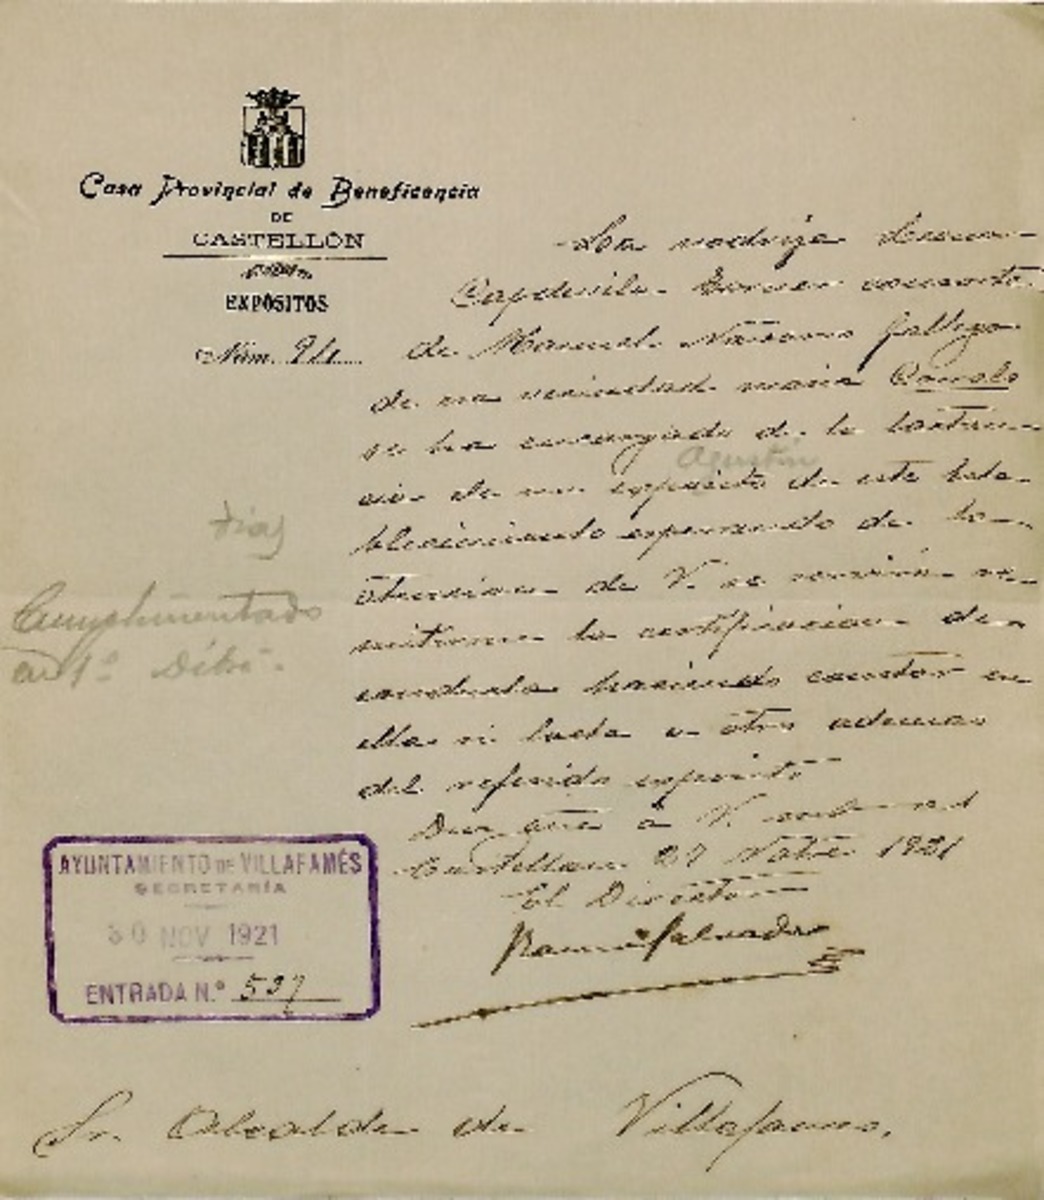 Casa Provincial de Beneficencia
DE
CASTELLÓN
EXPÓSITOS
Núm. 911
La nodriza
consorte
de Manuel Navarro Gallego
de esa vecindad masia
se ha encargado de la lactan-
Agustín
cia de un expósito de este Esta-
blecimiento esperando de la
atencion de V. se servirá re-
mitirme la certificacion de
conducta haciendo constar en
ella si lacta a otro ademas
del referido expósito
Dios gue á V. muchos as
Castellon 27 Nobre 1921
El Director
Ramón Salvador
Dias
Cumplimentado
en 1º Dibre.
AYUNTAMIENTO DE VILLAFAMÉS
SECRETARÍA
30 NOV 1921
ENTRADA N.º 537
Sr. Alcalde de Villafames.